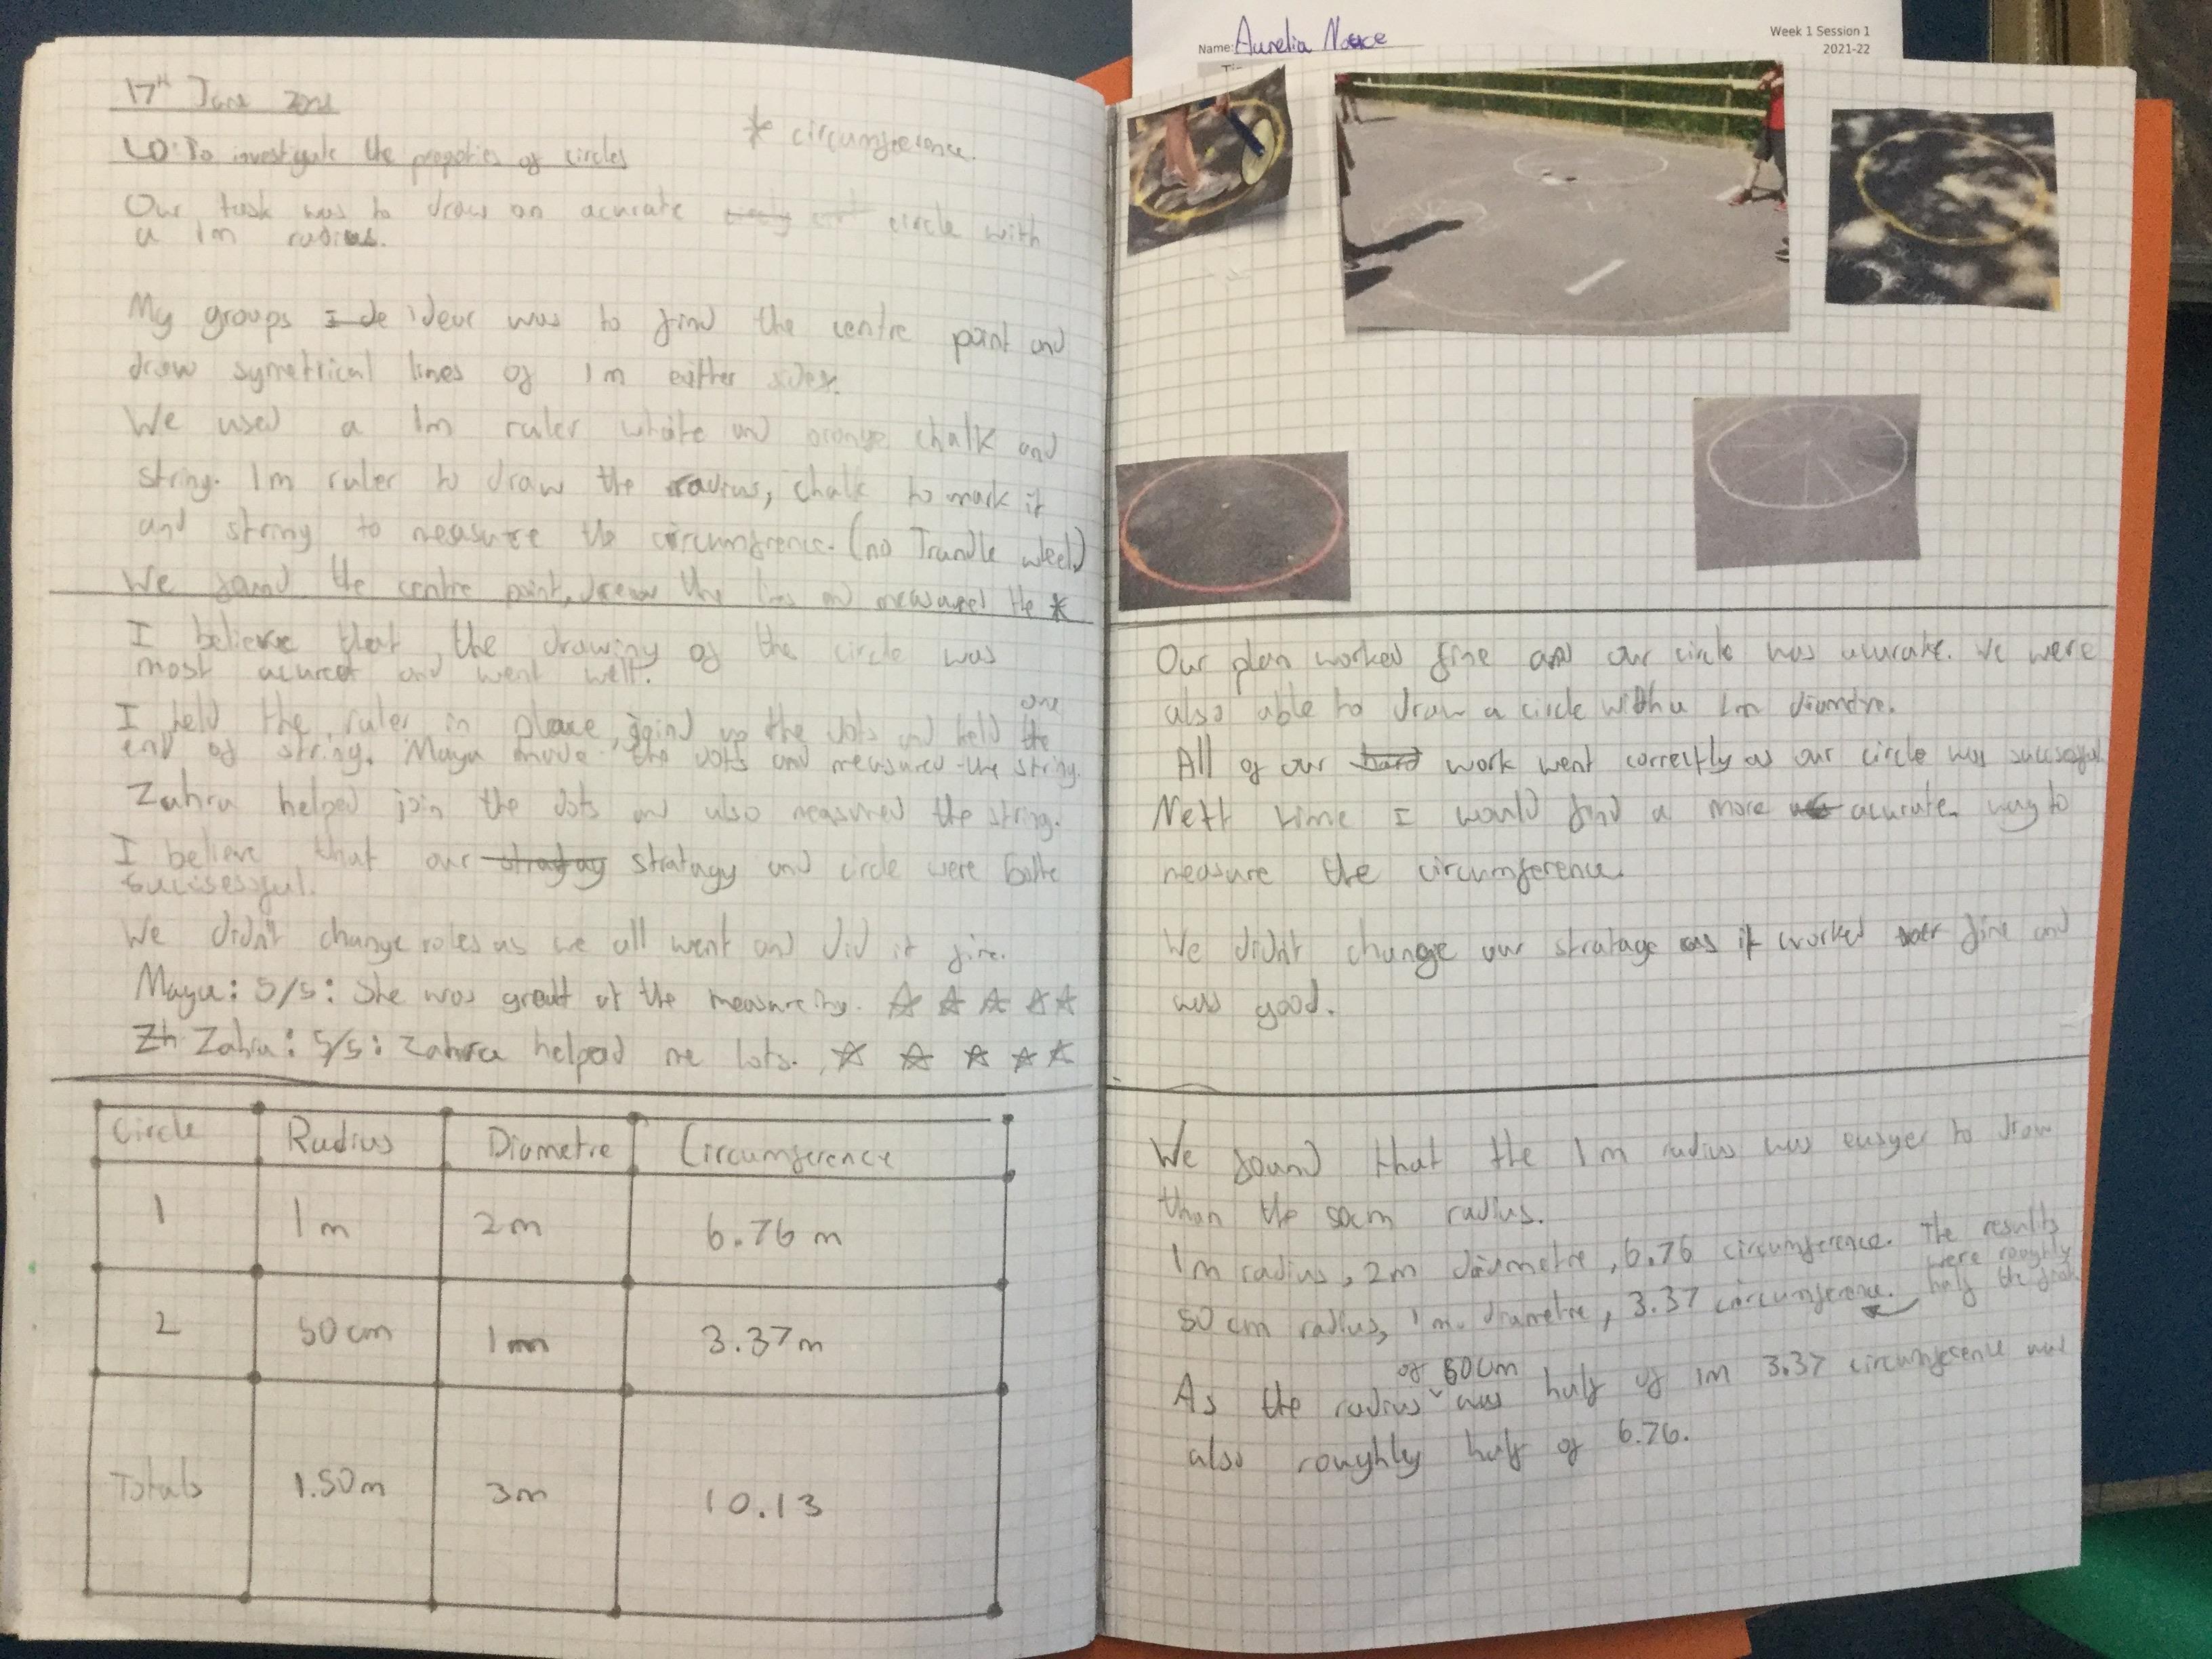 Name: Aurelia
Week 1 Session 1
2021-22
17th June
LO: To investigate the propoties of circles
* circumference.
Our task was to draw an acurate circle with
a 1m radius.
My groups idear was to find the centre point and
draw symetrical lines of 1m eather sides.
We used a 1m ruler white and orange chalk and
string. 1m ruler to draw the radius, chalk to mark it
and string to measure the circumfrence. (no Trundle wheel)
We found the centre point, drew the lines and measured the *
I believe that the drawing of the circle was
most acuret and went well.
I held the ruler in place, joind up the dots and held the one
end of string. Maya made the dots and measured the string.
Zahra helped join the dots and also measured the string.
I believe that our stratagy and circle were bothe
succisessful.
We didn't change roles as we all went and did it fine.
Maya: 5/5: She was great at the measureing. ☆ ☆ ☆ ☆ ☆
Zh Zahra: 5/5: Zahra helped me lots. ☆ ☆ ☆ ☆ ☆
Circle Radius Diametre Circumference
1 1m 2m 6.76 m
2 50cm 1m 3.37m
Totals 1.50m 3m 10.13
Our plan worked fine and our circle was acurate. We were
also able to draw a circle with a 1m diametre.
All of our hard work went correctly as our circle was sucsessful
Next time I would find a more acurate way to
measure the circumference.
We didn't change our stratage as it worked fine and
was good.
We found that the 1m radius was easyer to draw
than the 50cm radius.
1m radius, 2m diametre, 6.76 circumference. The results
were roughly
50cm radius, 1m diametre, 3.37 circumference. half the
of 50cm
As the radius was half of 1m 3.37 circumference was
also roughly half of 6.76.